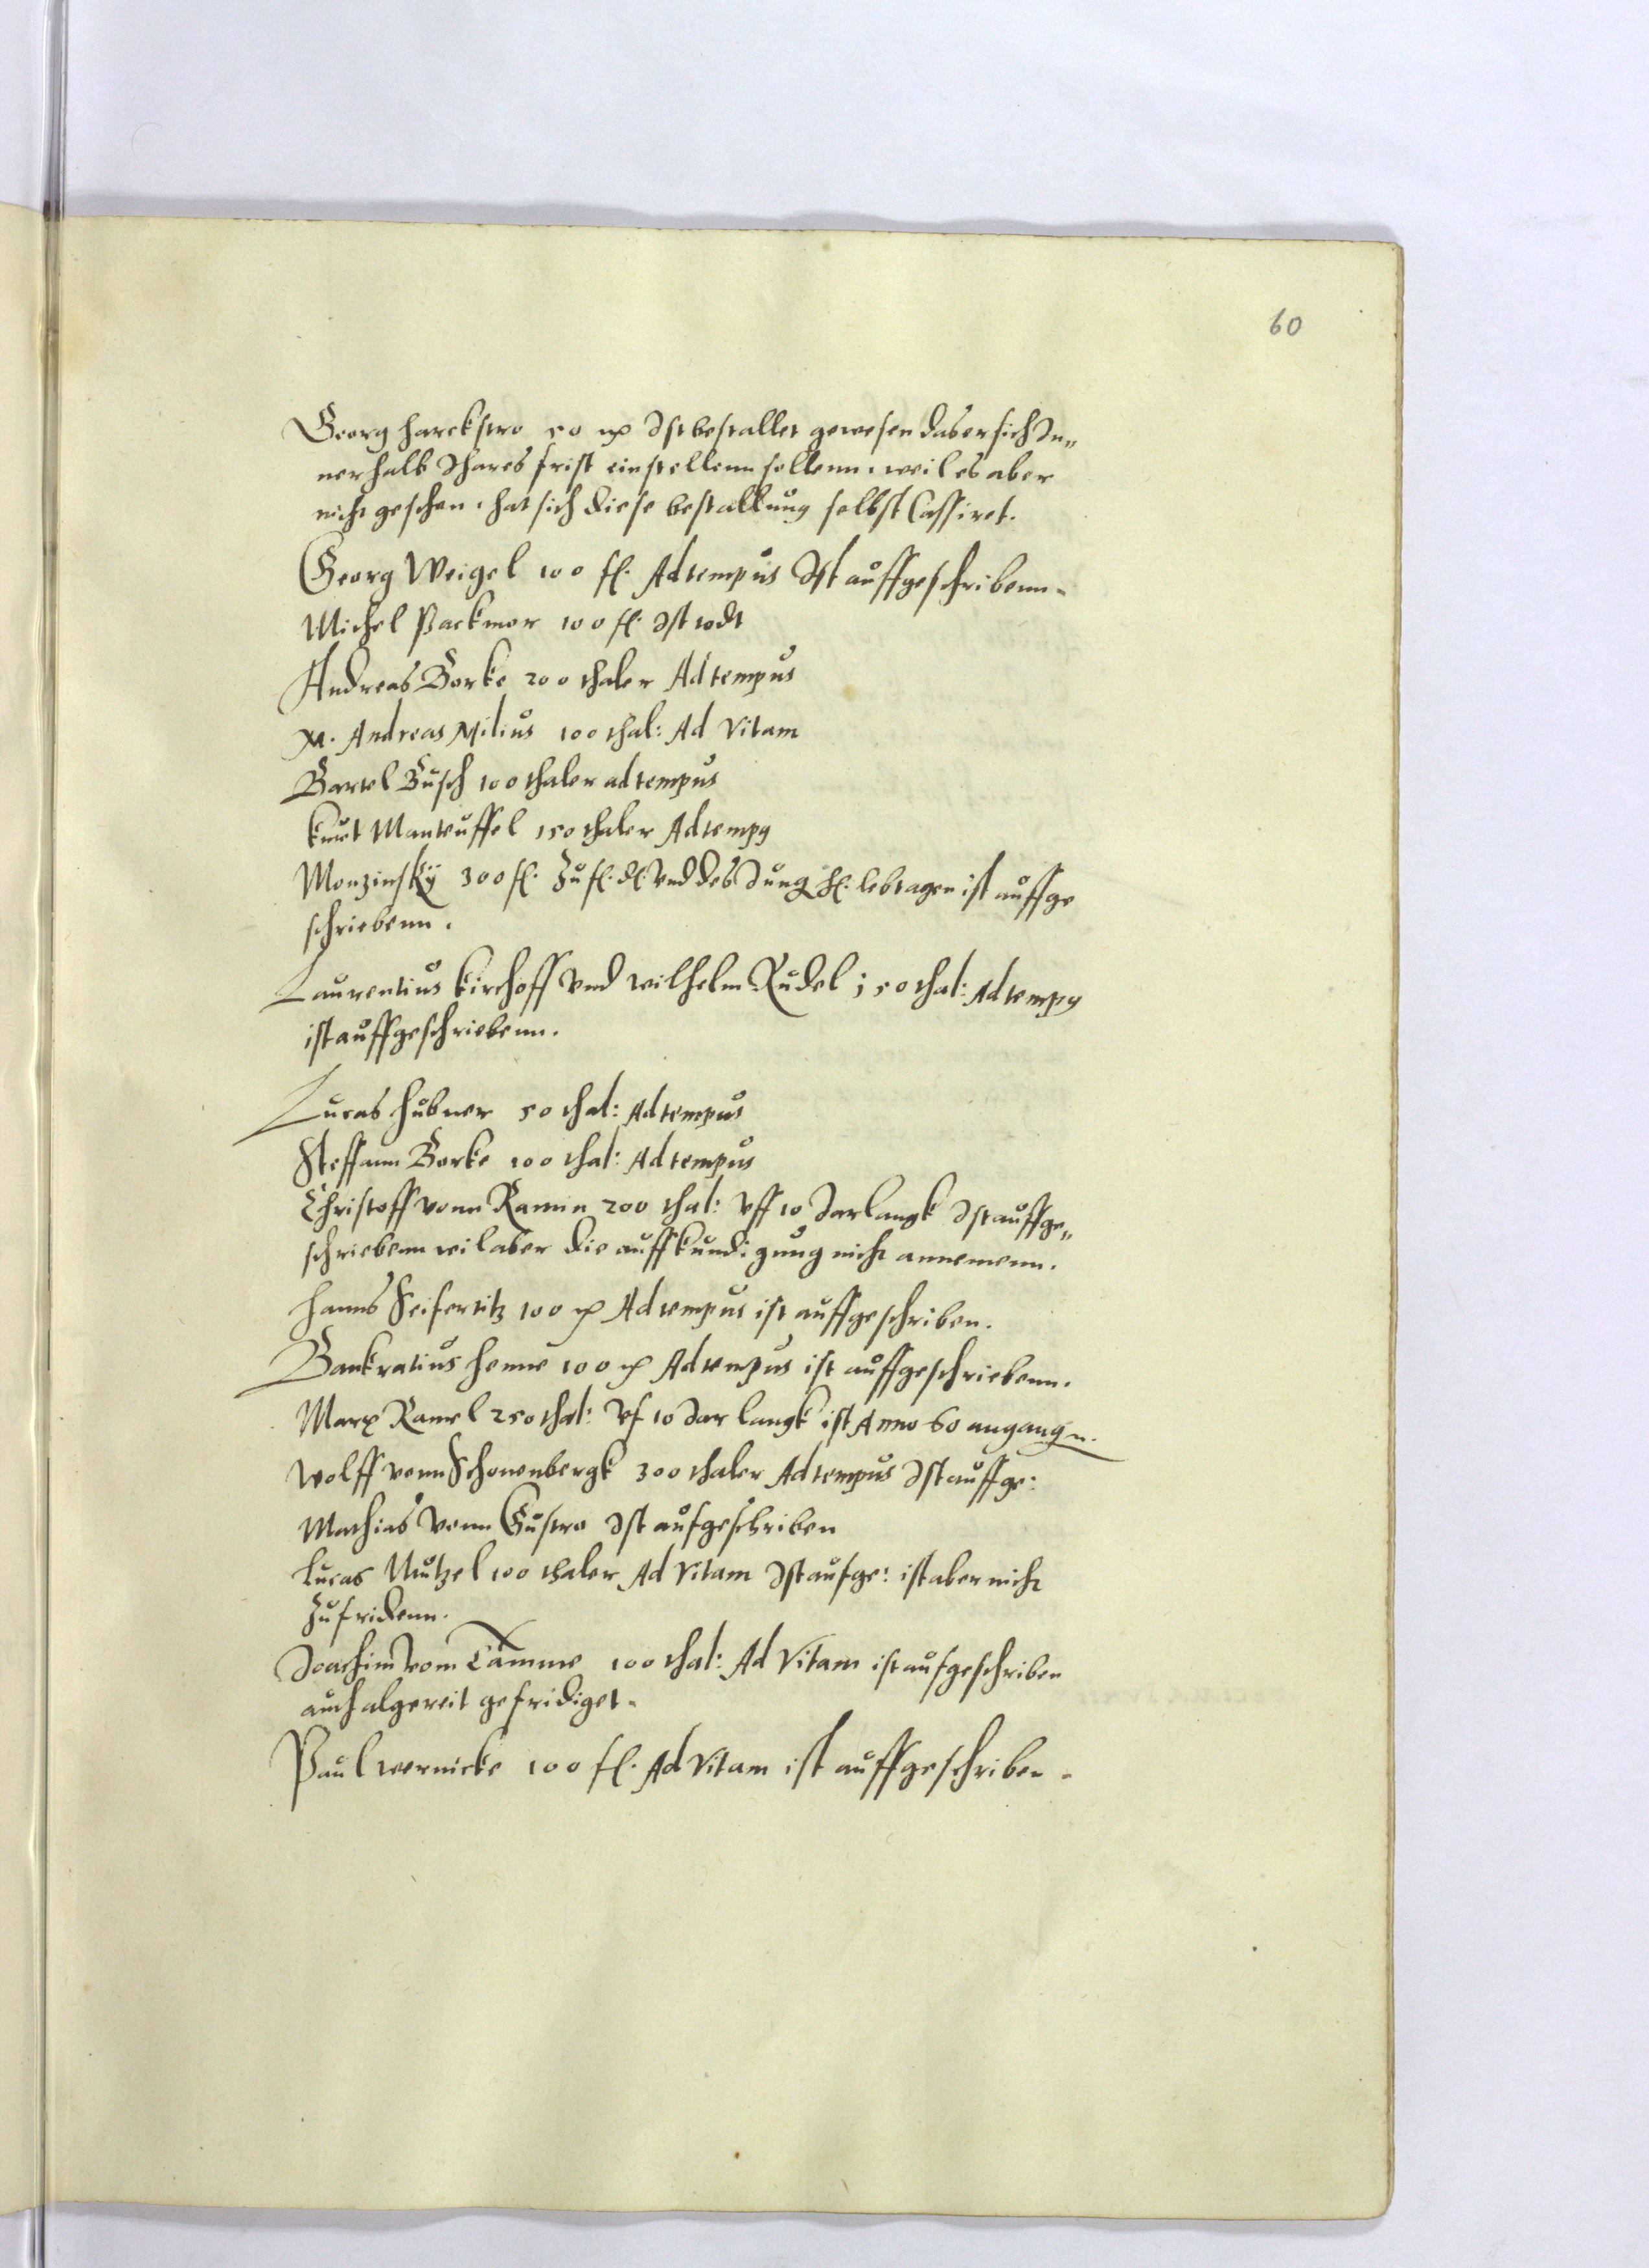 60
Georg harckstro 50 Ist bestallet gewesen das er sich In„
nerhalb Ihares frist einstellenn sollenn. weil es aber
nicht geschen. hat sich diese bestallung selbst Cassiret.
Georg Weigel 100 fl. Ad tempus Ist auffgeschribenn.
Michel Packmor 100 fl. Ist todt
Andreas Borke 200 thaler Ad tempus
M. Andreas Milius 100 thal: Ad Vitam
Bartel Busch 100 thaler ad tempus
Kurt Manteuffel 150 thaler Ad tempg
Monzinsky 300 fl. Zu fl. dl. Vnd des Jung hl. lebtagen ist auffge
schriebenn.
Laurentius Kirchoff vnd wilhelm Rudel 150 thal: Ad tempg
ist auffgeschriebenn.
Lucas hubner 50 thal: Ad tempus
Steffann Borke 100 thal: Ad tempus
Christoff vonn Ramin 200 thal: Vff 10 Jar langk Ist auffge„
schriebenn wil aber die auffkundigung nicht annemenn.
hanns Seifertitz 100 Ad tempus ist auffgeschriben.
Bankratius henne 100 Ad tempus ist auffgeschriebenn.
Marx Ramel 250 thal: Vf 10 Jar langk ist Anno 60 angangn.
Wolff vonn Schonenbergk 300 thaler Ad tempus Ist auffge:
Mathias vonn Gustro Ist aufgeschriben
Lucas Nutzel 100 thaler Ad Vitam Ist aufge: ist aber nicht
Zufridenn.
Joachim vom Tamme 100 thal: Ad Vitam ist aufgeschriben
auch algereit gefridiget.
Paul wernicke 100 fl. Ad Vitam ist auffgeschriben.